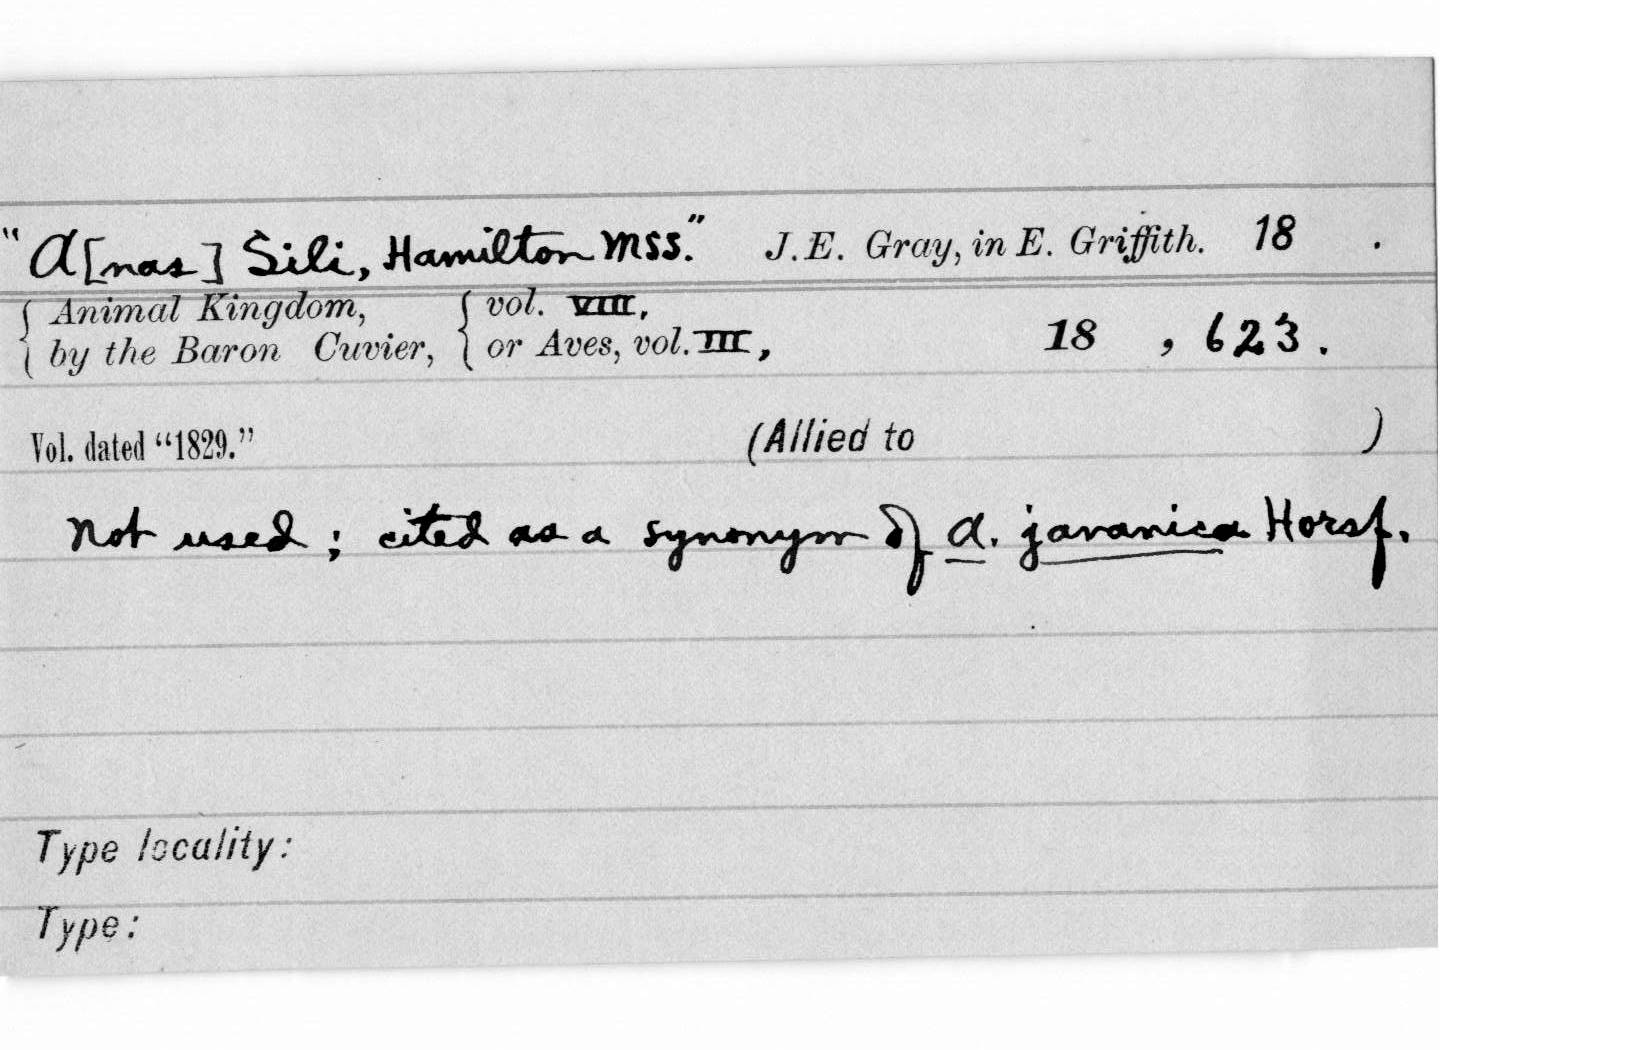 "A[nas] Sili, Hamilton MSS." J.E. Gray, in E. Griffith. 18 .
{ Animal Kingdom, { vol. VIII,
{ by the Baron Cuvier, { or Aves, vol. III, 18 , 623.
Vol. dated "1829." (Allied to )
Not used; cited as a synonym of A. javanica Horsf.
Type locality:
Type: